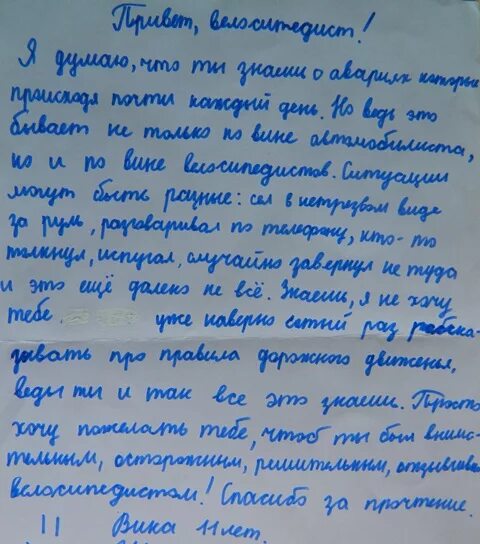 Привет, велосипедист!
Я думаю, что ты знаеш о авариях которые
происходя почти каждый день. Но ведь это
бывает не только по вине автомобилиста,
но и по вине велосипедистов. Ситуации
могут быть разные: сел в нетрезвом виде
за руль, разговаривал по телефону, кто-то
толкнул, испугал, случайно завернул не туда
и это ещё далеко не всё. Знаеш, я не хочу
тебе уже наверно сотый раз расска-
зывать про правила дорожного движенья,
ведь ты и так все это знаеш. Просто
хочу пожелать тебе, чтоб ты был внима-
тельным, осторожным, решительным,
велосипедистом! Спасибо за прочтение.
Вика 11 лет.